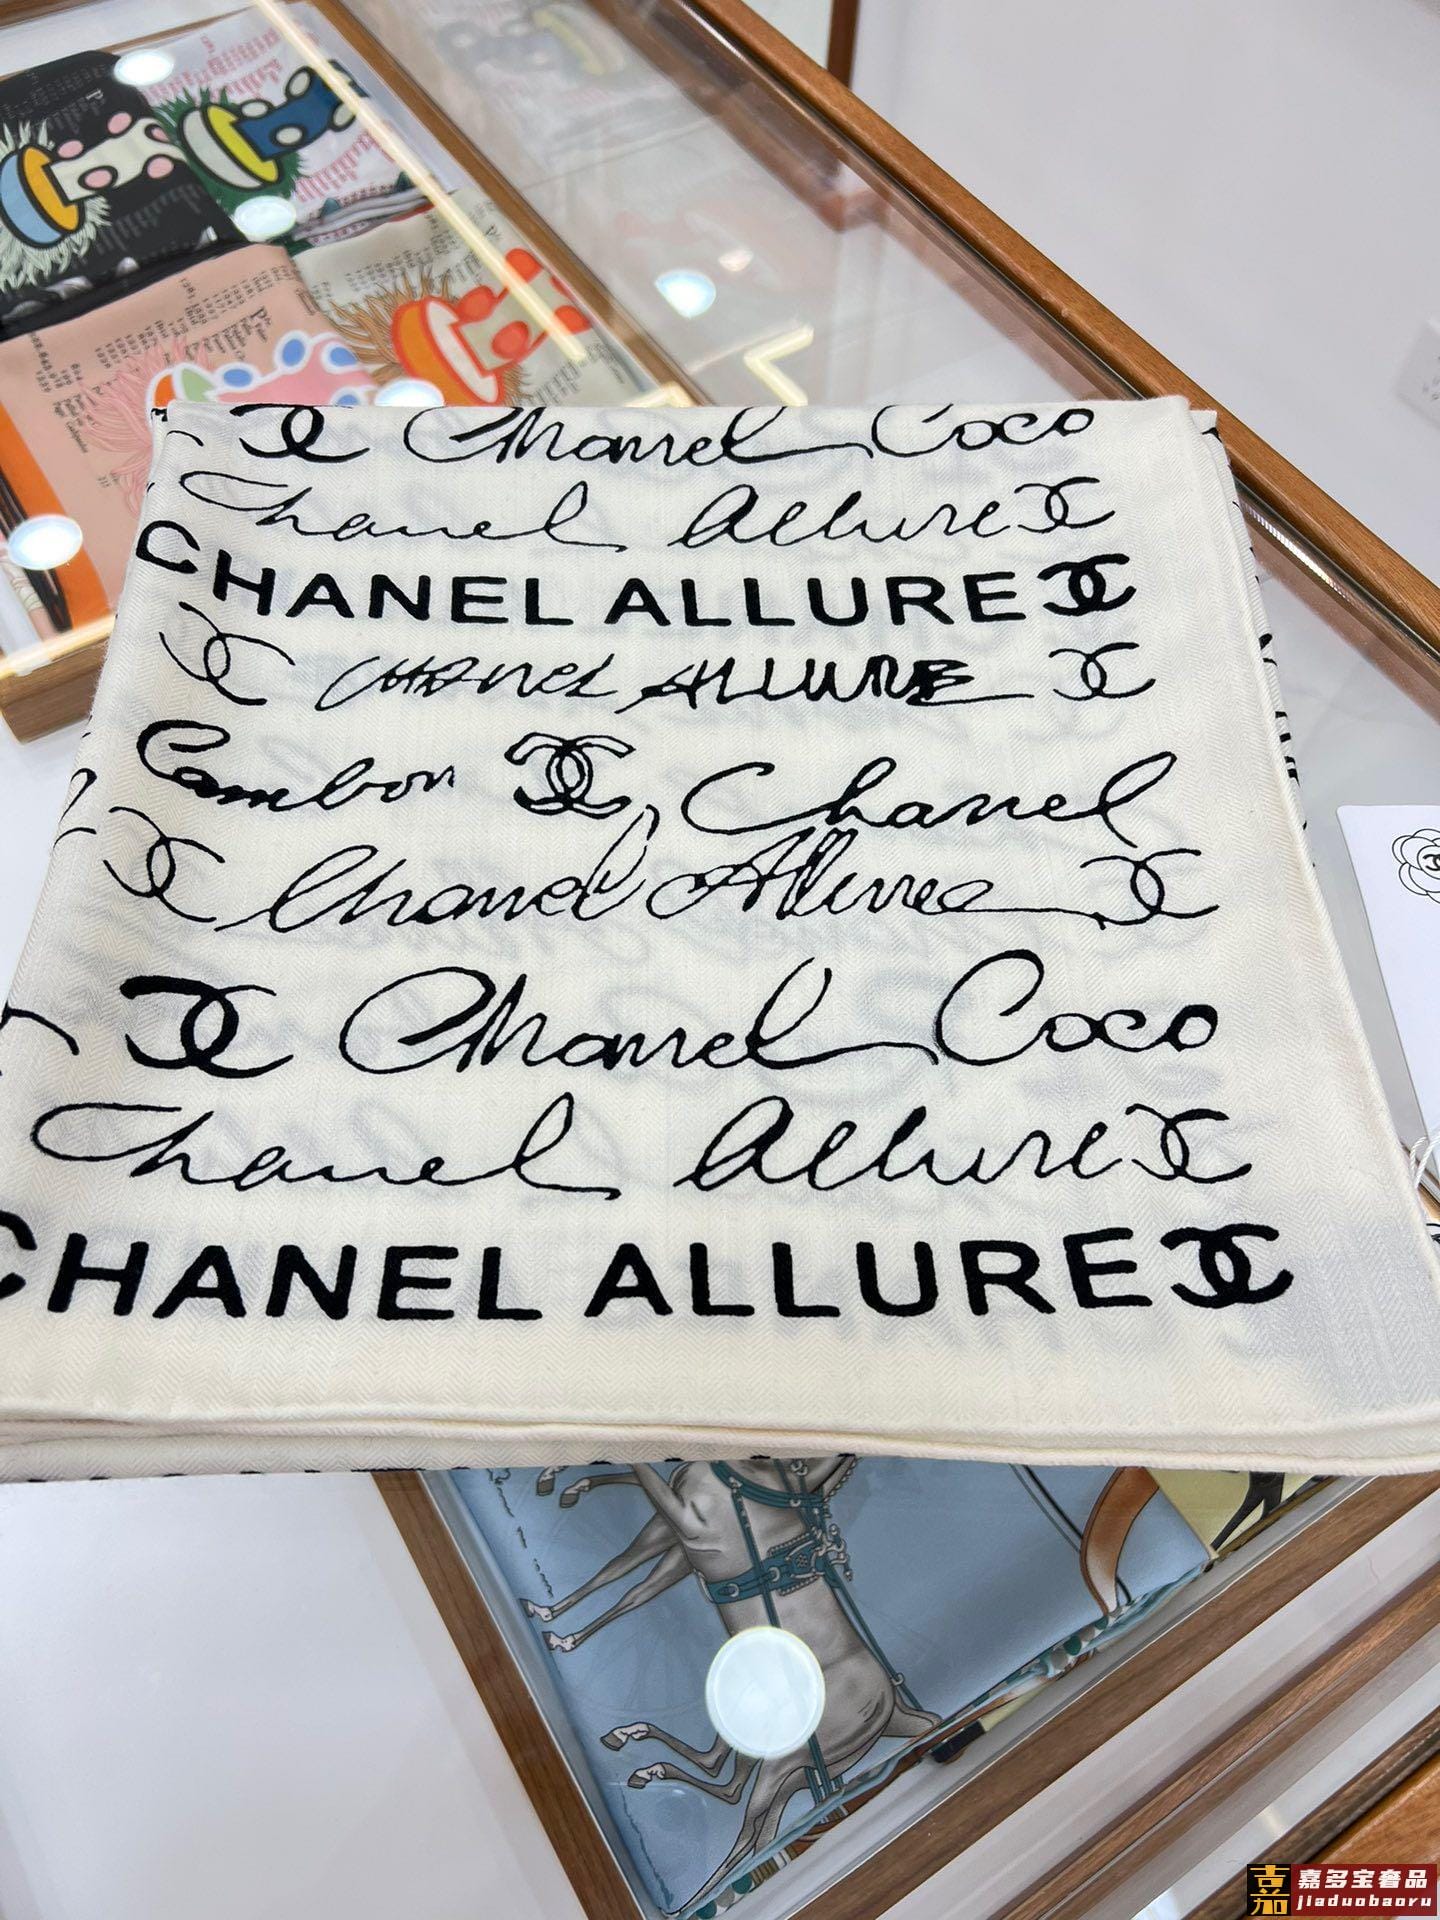 Chanel Coco
Chanel Allure
CHANEL ALLURE
CHANEL ALLURE
Cambon Chanel
Chanel Allure
Chanel Coco
Chanel Allure
CHANEL ALLURE
嘉 嘉多宝奢品
jiaduobaoru